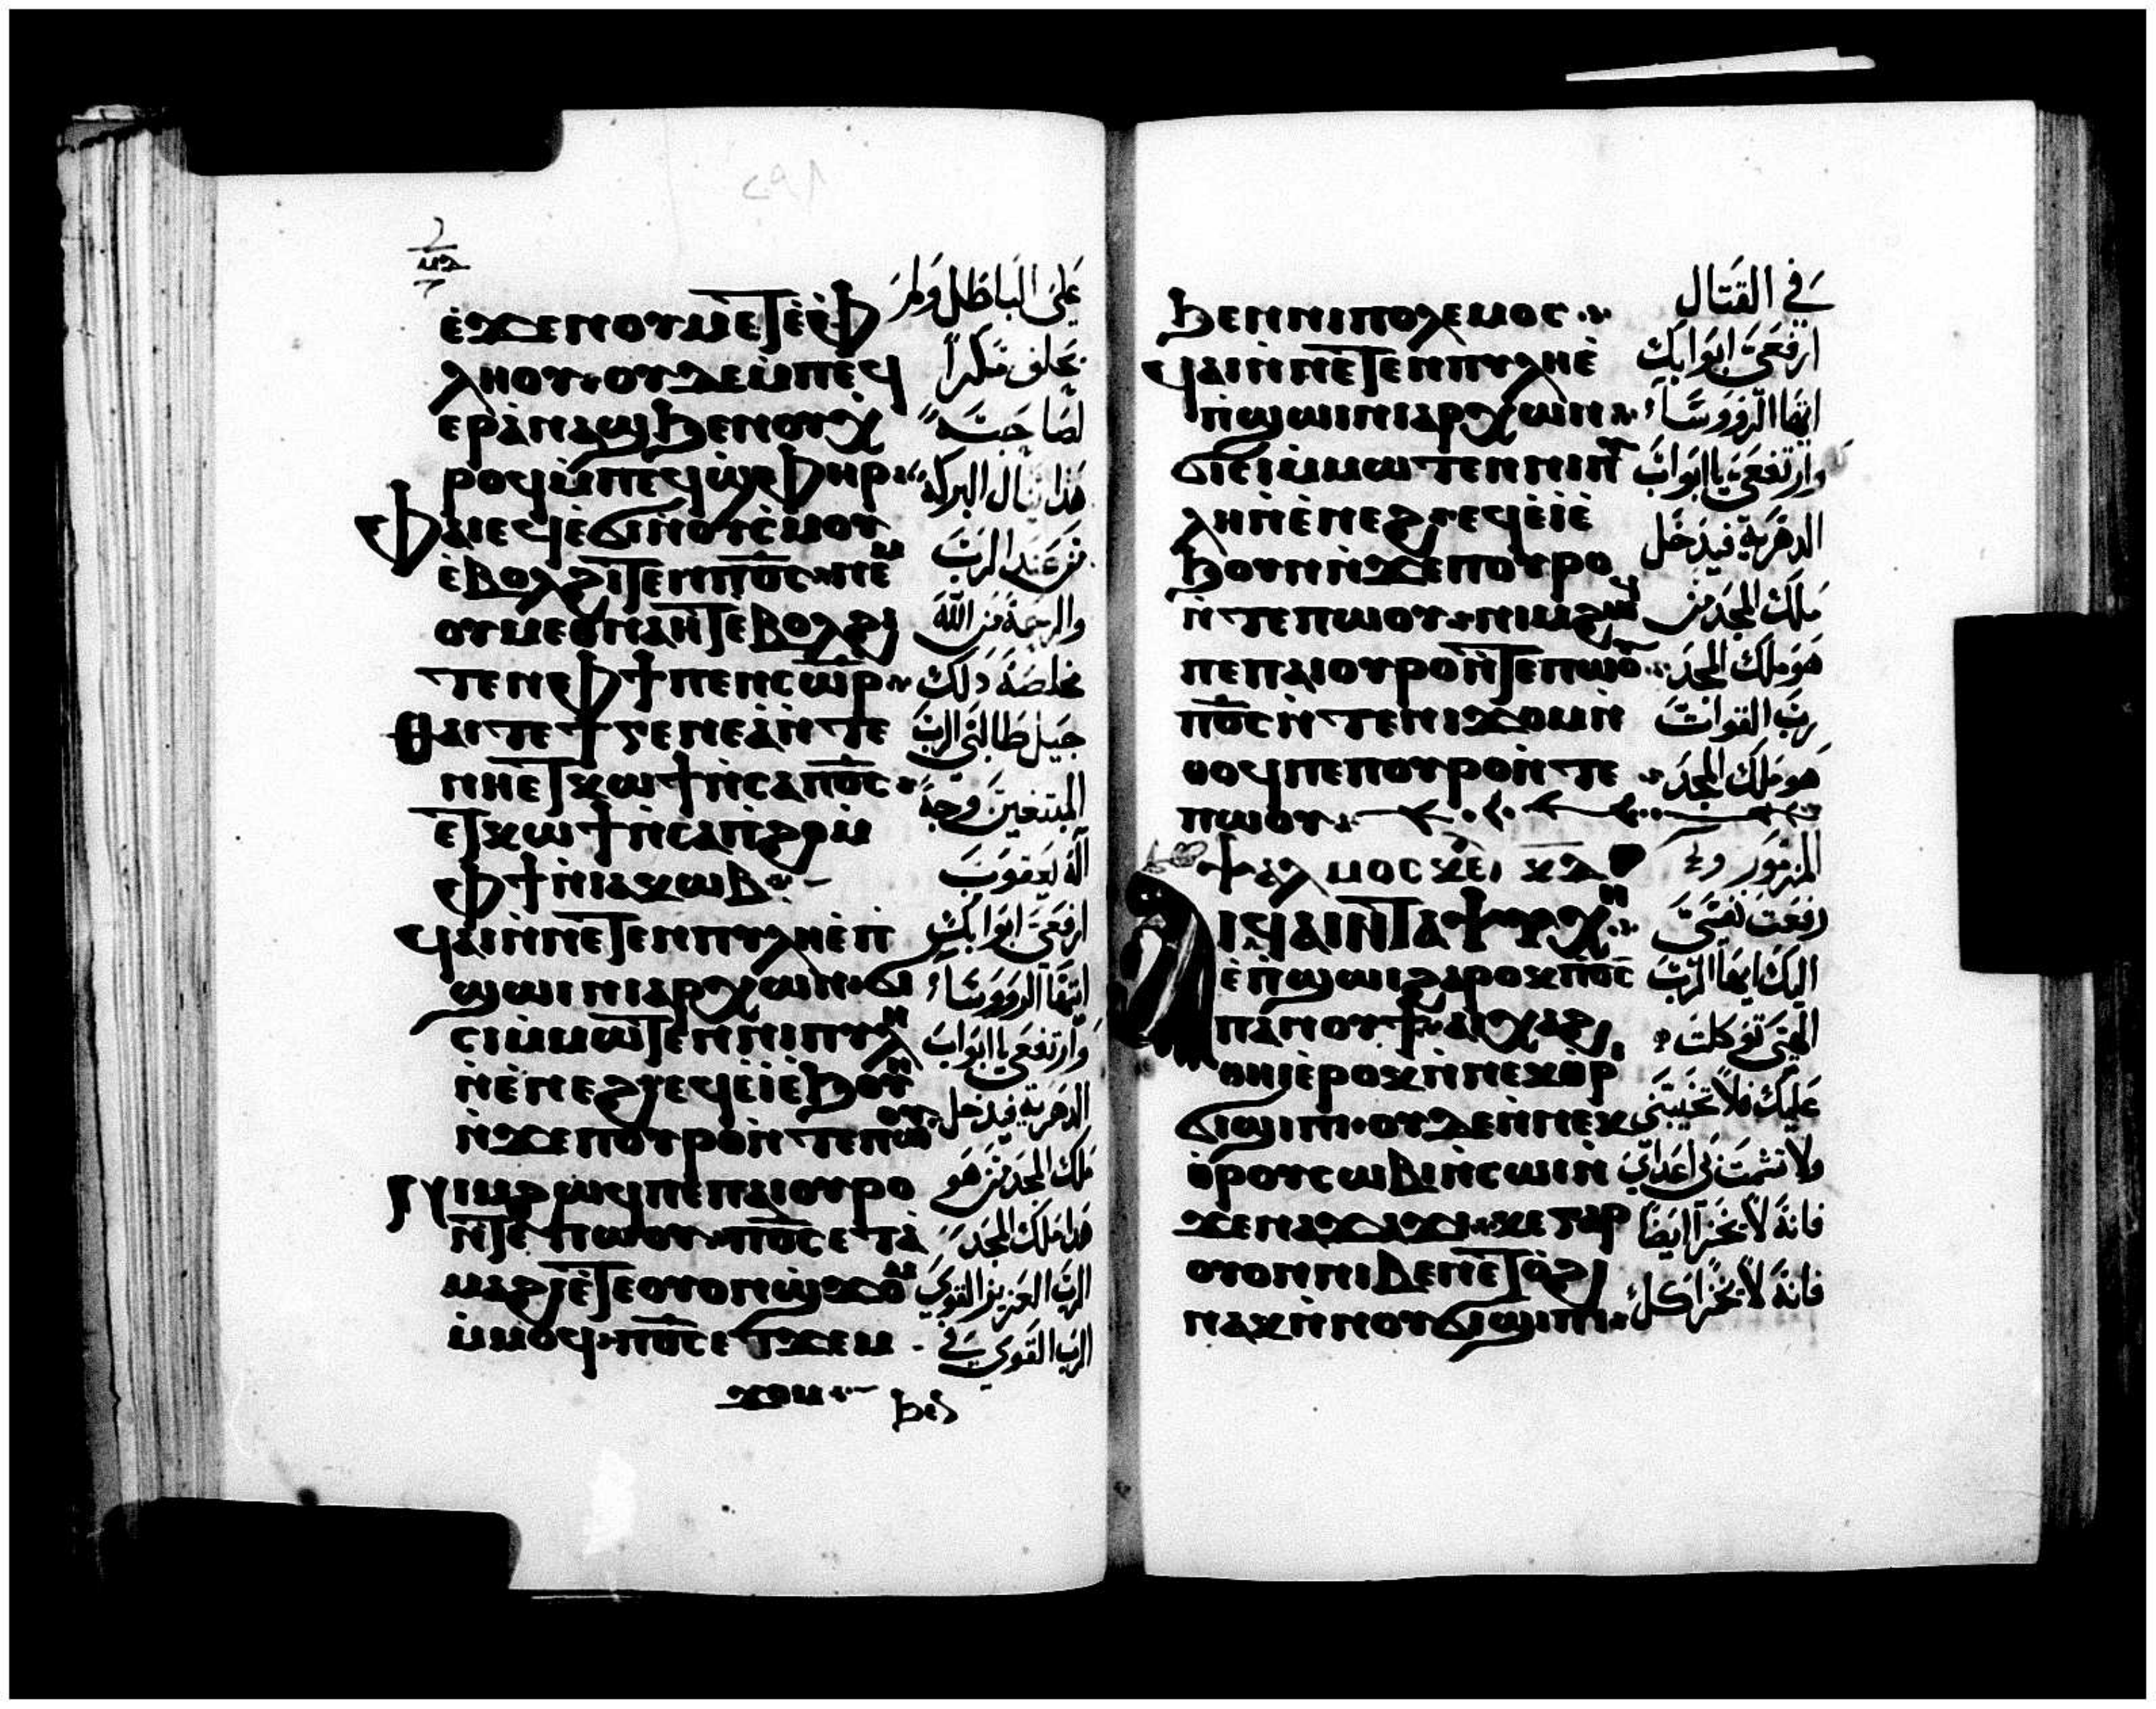 ⲙⲁ
ⲉ̀ϫⲉⲛⲟⲩⲙⲉⲧⲉ̀ⲫ
ⲗⲏⲟⲩ⳿ ⲟⲩⲇⲉⲙ̀ⲡⲉϥ
ⲉⲣⲁ̀ⲛⲁϣϧⲉⲛⲟⲩⲭ
ⲣⲟϥⲙ̀ⲡⲉϥϣ̀ⲫⲏⲣ
ⲫⲁⲓⲉϥⲉ̀ϭⲓⲛ̀ⲟⲩⲥ̀ⲙⲟⲩ
ⲉ̀ⲃⲟⲗϩⲓⲧⲉⲛⲡⲟ̅ⲥ̅ ⲛⲉⲙ
ⲟⲩⲙⲉⲑⲛⲁⲏⲧⲉⲃⲟⲗϩⲓ
ⲧⲉⲛⲫϯⲡⲉⲛⲥⲱⲣ
ⲑⲁⲓⲧⲉϯⲅⲉⲛⲉⲁ̀ⲛ̀ⲧⲉ
ⲛⲏⲉⲧⲕⲱϯⲛ̀ⲥⲁⲡⲟ̅ⲥ̅
ⲉⲧⲕⲱϯⲛ̀ⲥⲁⲡϩⲟⲙ̀
ⲫϯⲛ̀ⲓⲁⲕⲱⲃ
ϥⲁⲓⲛ̀ⲛⲉⲧⲉⲛⲡⲩⲗⲏⲉ̀ⲡ̀
ϣⲱⲓⲛⲓⲁⲣⲭⲱⲛ ϭⲓ
ⲥⲓⲙ̀ⲙⲱⲧⲉⲛⲛⲓⲡⲩⲗⲏ
ⲛ̀ⲉ̀ⲛⲉϩ ⲉϥⲉ̀ⲓ̀ⲉϧⲟⲩⲛ
ⲛ̀ϫⲉⲡⲟⲩⲣⲟⲛ̀ⲧⲉⲡⲱⲟⲩ
ⲛⲓⲙϩⲱϥⲡⲉⲡⲁⲓⲟⲩⲣⲟ
ⲛ̀ⲧⲉⲡⲱⲟⲩ ⲡⲟ̅ⲥ̅ⲉⲧⲁ̀
ⲙⲁϩⲓⲉ̀ⲧⲉⲟⲩⲟⲛϣ̀ϫⲟⲙ
ⲙ̀ⲙⲟϥ ⲡⲟ̅ⲥ̅ⲉⲧϫⲉⲙ
ϫⲟⲙ
ϧⲉⲛ
عَلَى البَاطِل وَلم
يَحلف مَكراً
لصَاحبَه
هَذا يَنَال البركَة
مَن عَند الرَب
والرحمَة مَن اللّه
مَخلصَة ذلك
جيل طَالبَى الرَب
المبتغين وجه
آله يعقوبَ
ارفعَى ابوَابك
ايَهَا الروؤسَاء
وَارتفعَى يا ابوَاب
الدهريَة فيدخل
ملك المجد مَن هو
هَذا ملك المجد
الرَب العَزيز القوَى
الرَب القوَى في
ϧⲉⲛⲛⲓⲡⲟⲗⲉⲙⲟⲥ
ϥⲁⲓⲛ̀ⲛⲉⲧⲉⲛⲡⲩⲗⲏⲉ̀
ⲡ̀ϣⲱⲓⲛⲓⲁⲣⲭⲱⲛ
ϭⲓⲥⲓⲙ̀ⲙⲱⲧⲉⲛⲛⲓⲡⲩ
ⲗⲏⲛ̀ⲉ̀ⲛⲉϩ ⲉϥⲉ̀ⲓ̀ⲉ
ϧⲟⲩⲛⲛ̀ϫⲉⲡⲟⲩⲣⲟ
ⲛ̀ⲧⲉⲡⲱⲟⲩ ⲛⲓⲙϩⲱϥ
ⲡⲉⲡⲁⲓⲟⲩⲣⲟⲛ̀ⲧⲉⲡⲱⲟⲩ
ⲡⲟ̅ⲥ̅ⲛ̀ⲧⲉⲛⲓϫⲟⲙⲛ̀
ⲑⲟϥⲡⲉⲡⲟⲩⲣⲟⲛ̀ⲧⲉ
ⲡⲱⲟⲩ
ⲯⲁⲗⲙⲟⲥ ⲕⲇ
ⲁⲓϥⲁⲓⲛ̀ⲧⲁⲯⲩⲭⲏ
ⲉ̀ⲡ̀ϣⲱⲓϩⲁⲣⲟⲕⲡⲟ̅ⲥ̅
ⲡⲁⲛⲟⲩϯ ⲁⲓⲭⲁϩ
ⲑⲏⲓⲉ̀ⲣⲟⲕⲛ̀ⲛⲉⲕⲑⲣⲓ
ϭⲓϣⲓⲡⲓ ⲟⲩⲇⲉⲛ̀ⲛⲉⲕ
ⲑⲣⲟⲩⲥⲱⲃⲓⲛ̀ⲥⲱⲓⲛ̀
ϫⲉⲛⲁϫⲁϫⲓ ⲕⲉⲅⲁⲣ
ⲟⲩⲟⲛⲛⲓⲃⲉⲛⲉ̀ⲧⲟ̀ϩⲓ
ⲛⲁⲕⲛ̀ⲛⲟⲩϭⲓϣⲓⲡⲓ
في القتَال
ارفعَى ابوَابك
ايهَا الروؤسَاء
وَارتفعَى يا ابوَاب
الدهريَة فيدخل
ملك المجد من
هوَ ملك المجد
رب القوات
هوَ ملك المجد
المزمور
رفعت نفسَى
اليك ايهَا الرَب
الهَى توكلت
عَليك فلا تخيبنى
ولا تشمت بى اعداَى
فانه لا يخزا ايضا
فانه لا يخزا كل